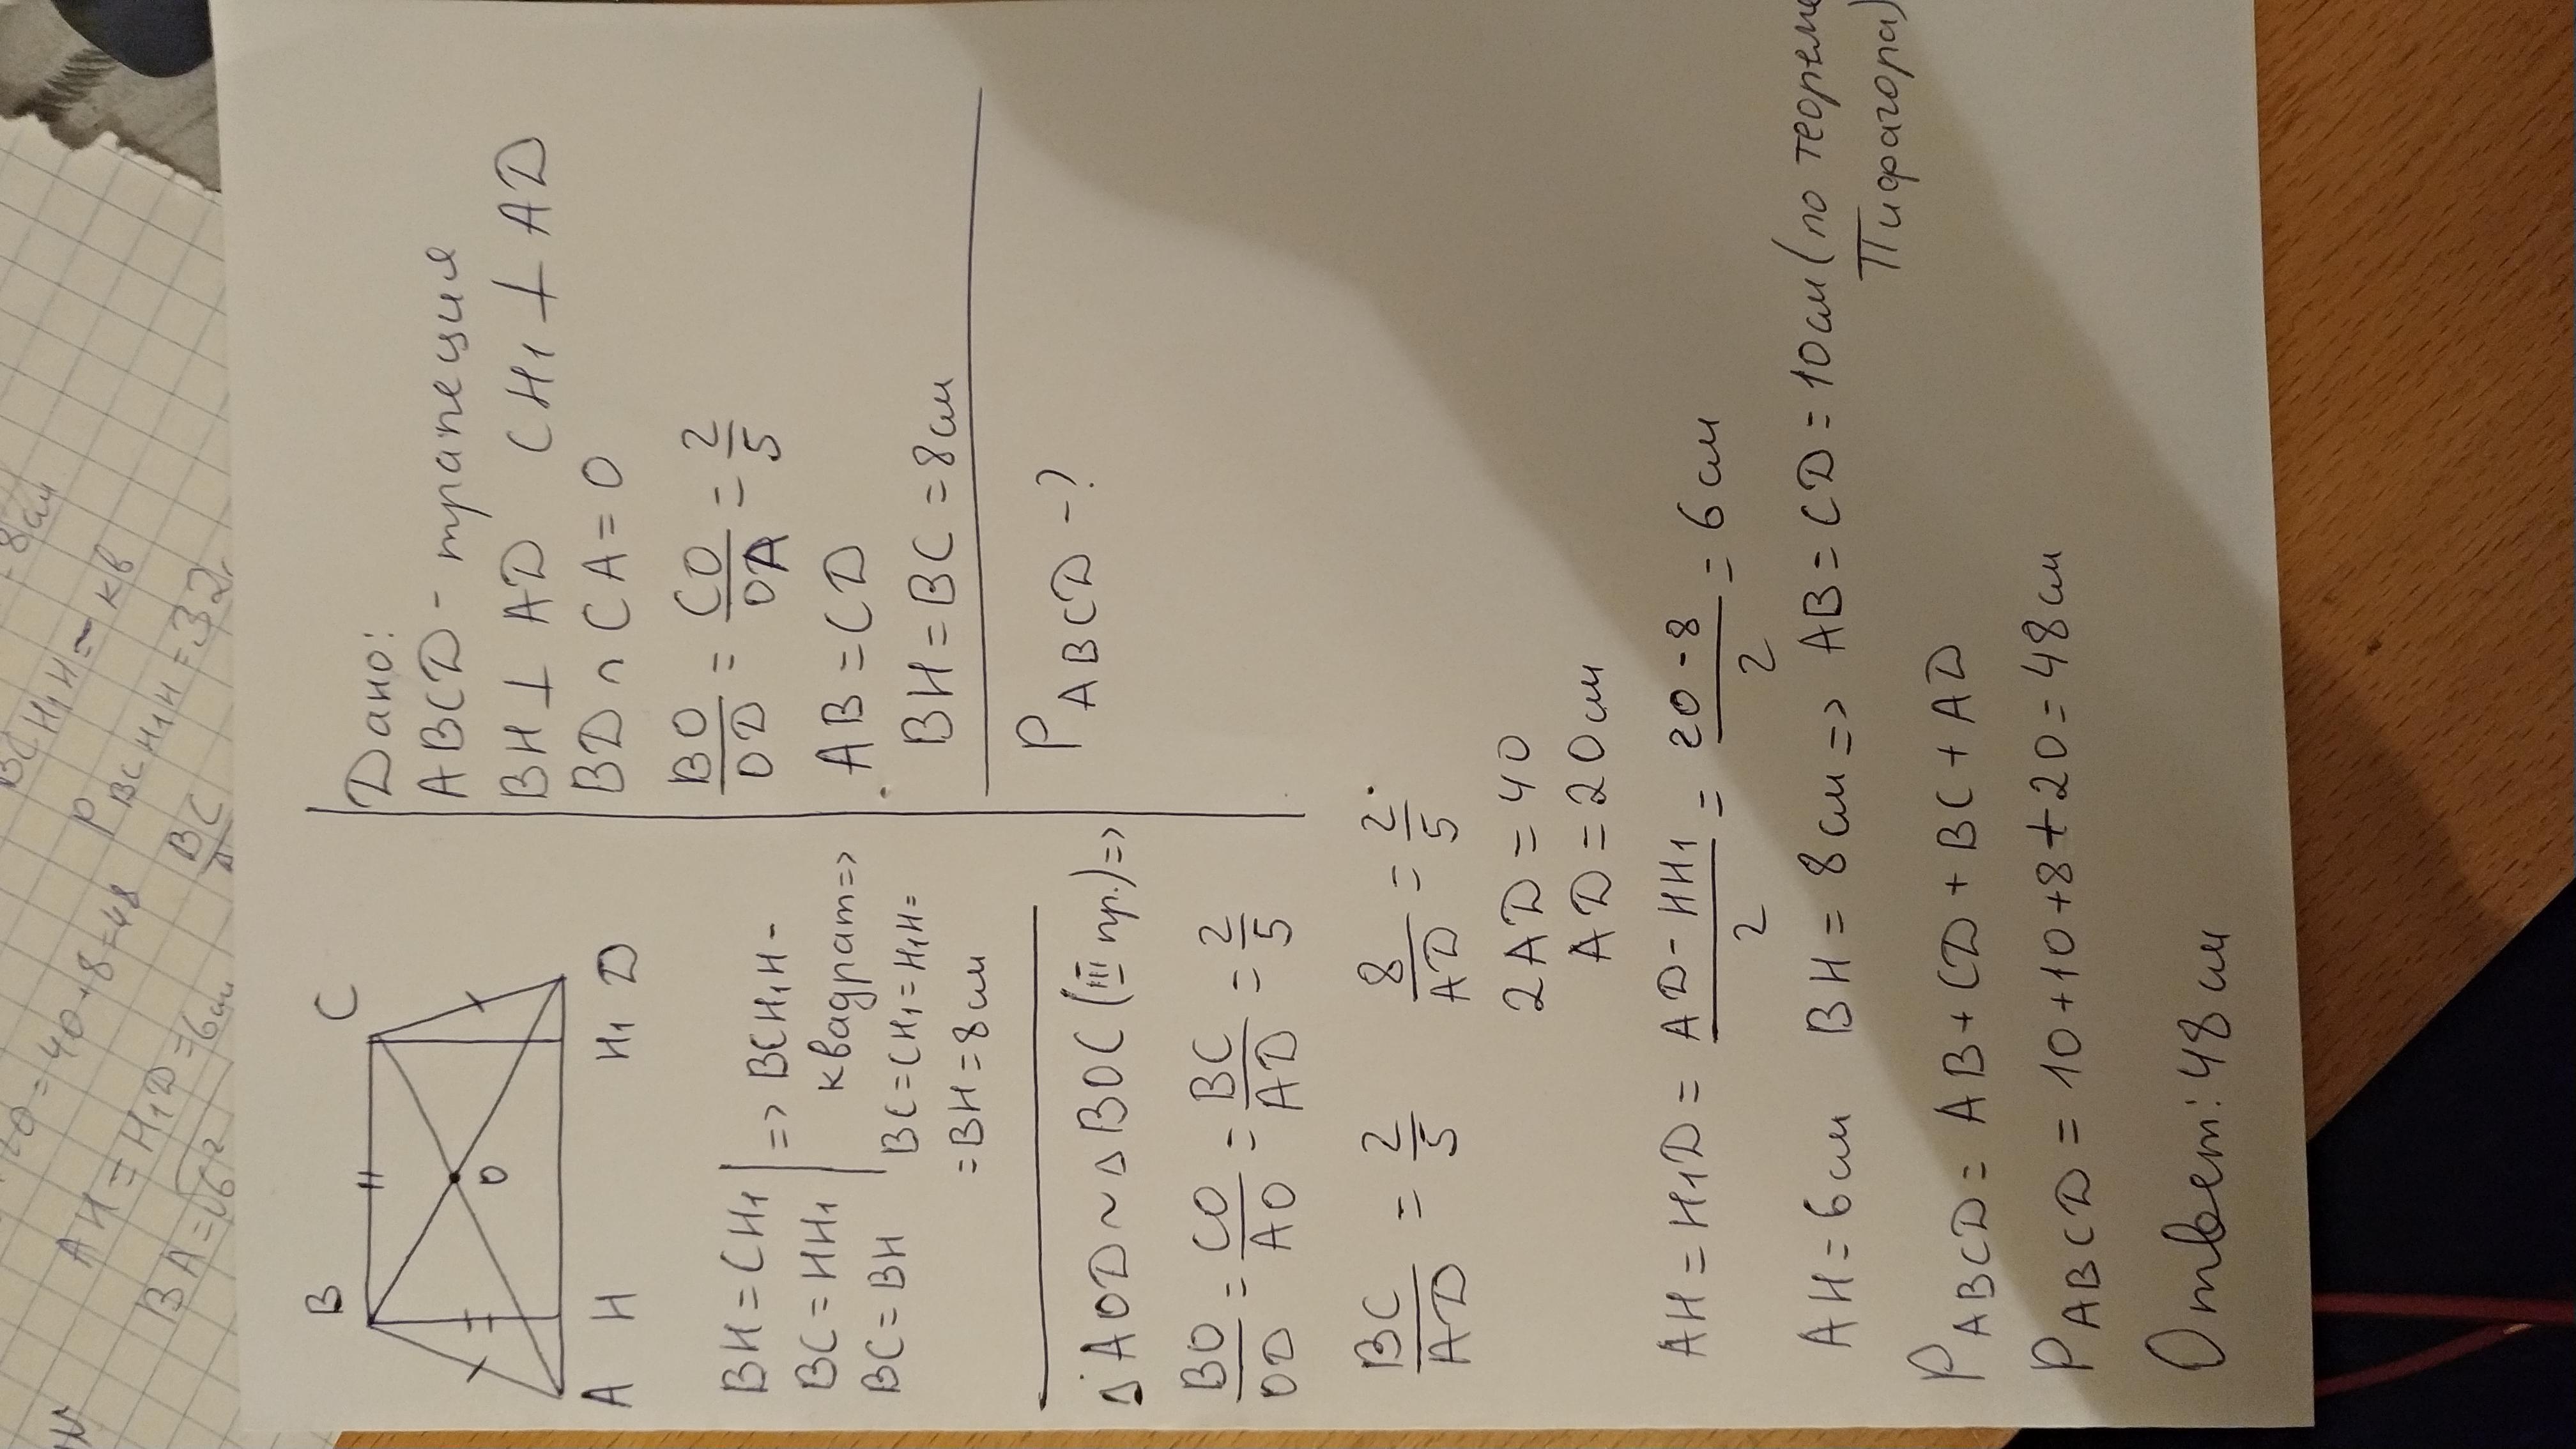 B C
O
A H H₁ D
Дано:
ABCD - трапеция
BH ⊥ AD CH₁ ⊥ AD
BD ∩ CA = O
BO/OD = CO/OA = 2/5
AB = CD
BH = BC = 8 см
P ABCD - ?
BH = CH₁
BC = HH₁
BC = BH
=> BCH₁H -
квадрат =>
BC = CH₁ = H₁H =
= BH = 8 см
Δ AOD ~ Δ BOC (III пр.) =>
BO/OD = CO/AO = BC/AD = 2/5
BC/AD = 2/5 8/AD = 2/5
2AD = 40
AD = 20 см
AH = H₁D = AD - HH₁/2 = 20 - 8/2 = 6 см
AH = 6 см BH = 8 см => AB = CD = 10 см (по теореме
Пифагора)
P ABCD = AB + CD + BC + AD
P ABCD = 10 + 10 + 8 + 20 = 48 см
Ответ: 48 см
8 см
BCH₁H - кв
P BCH₁H = 32
BC
= 40 + 8 = 48
AH = H₁D = 6 см